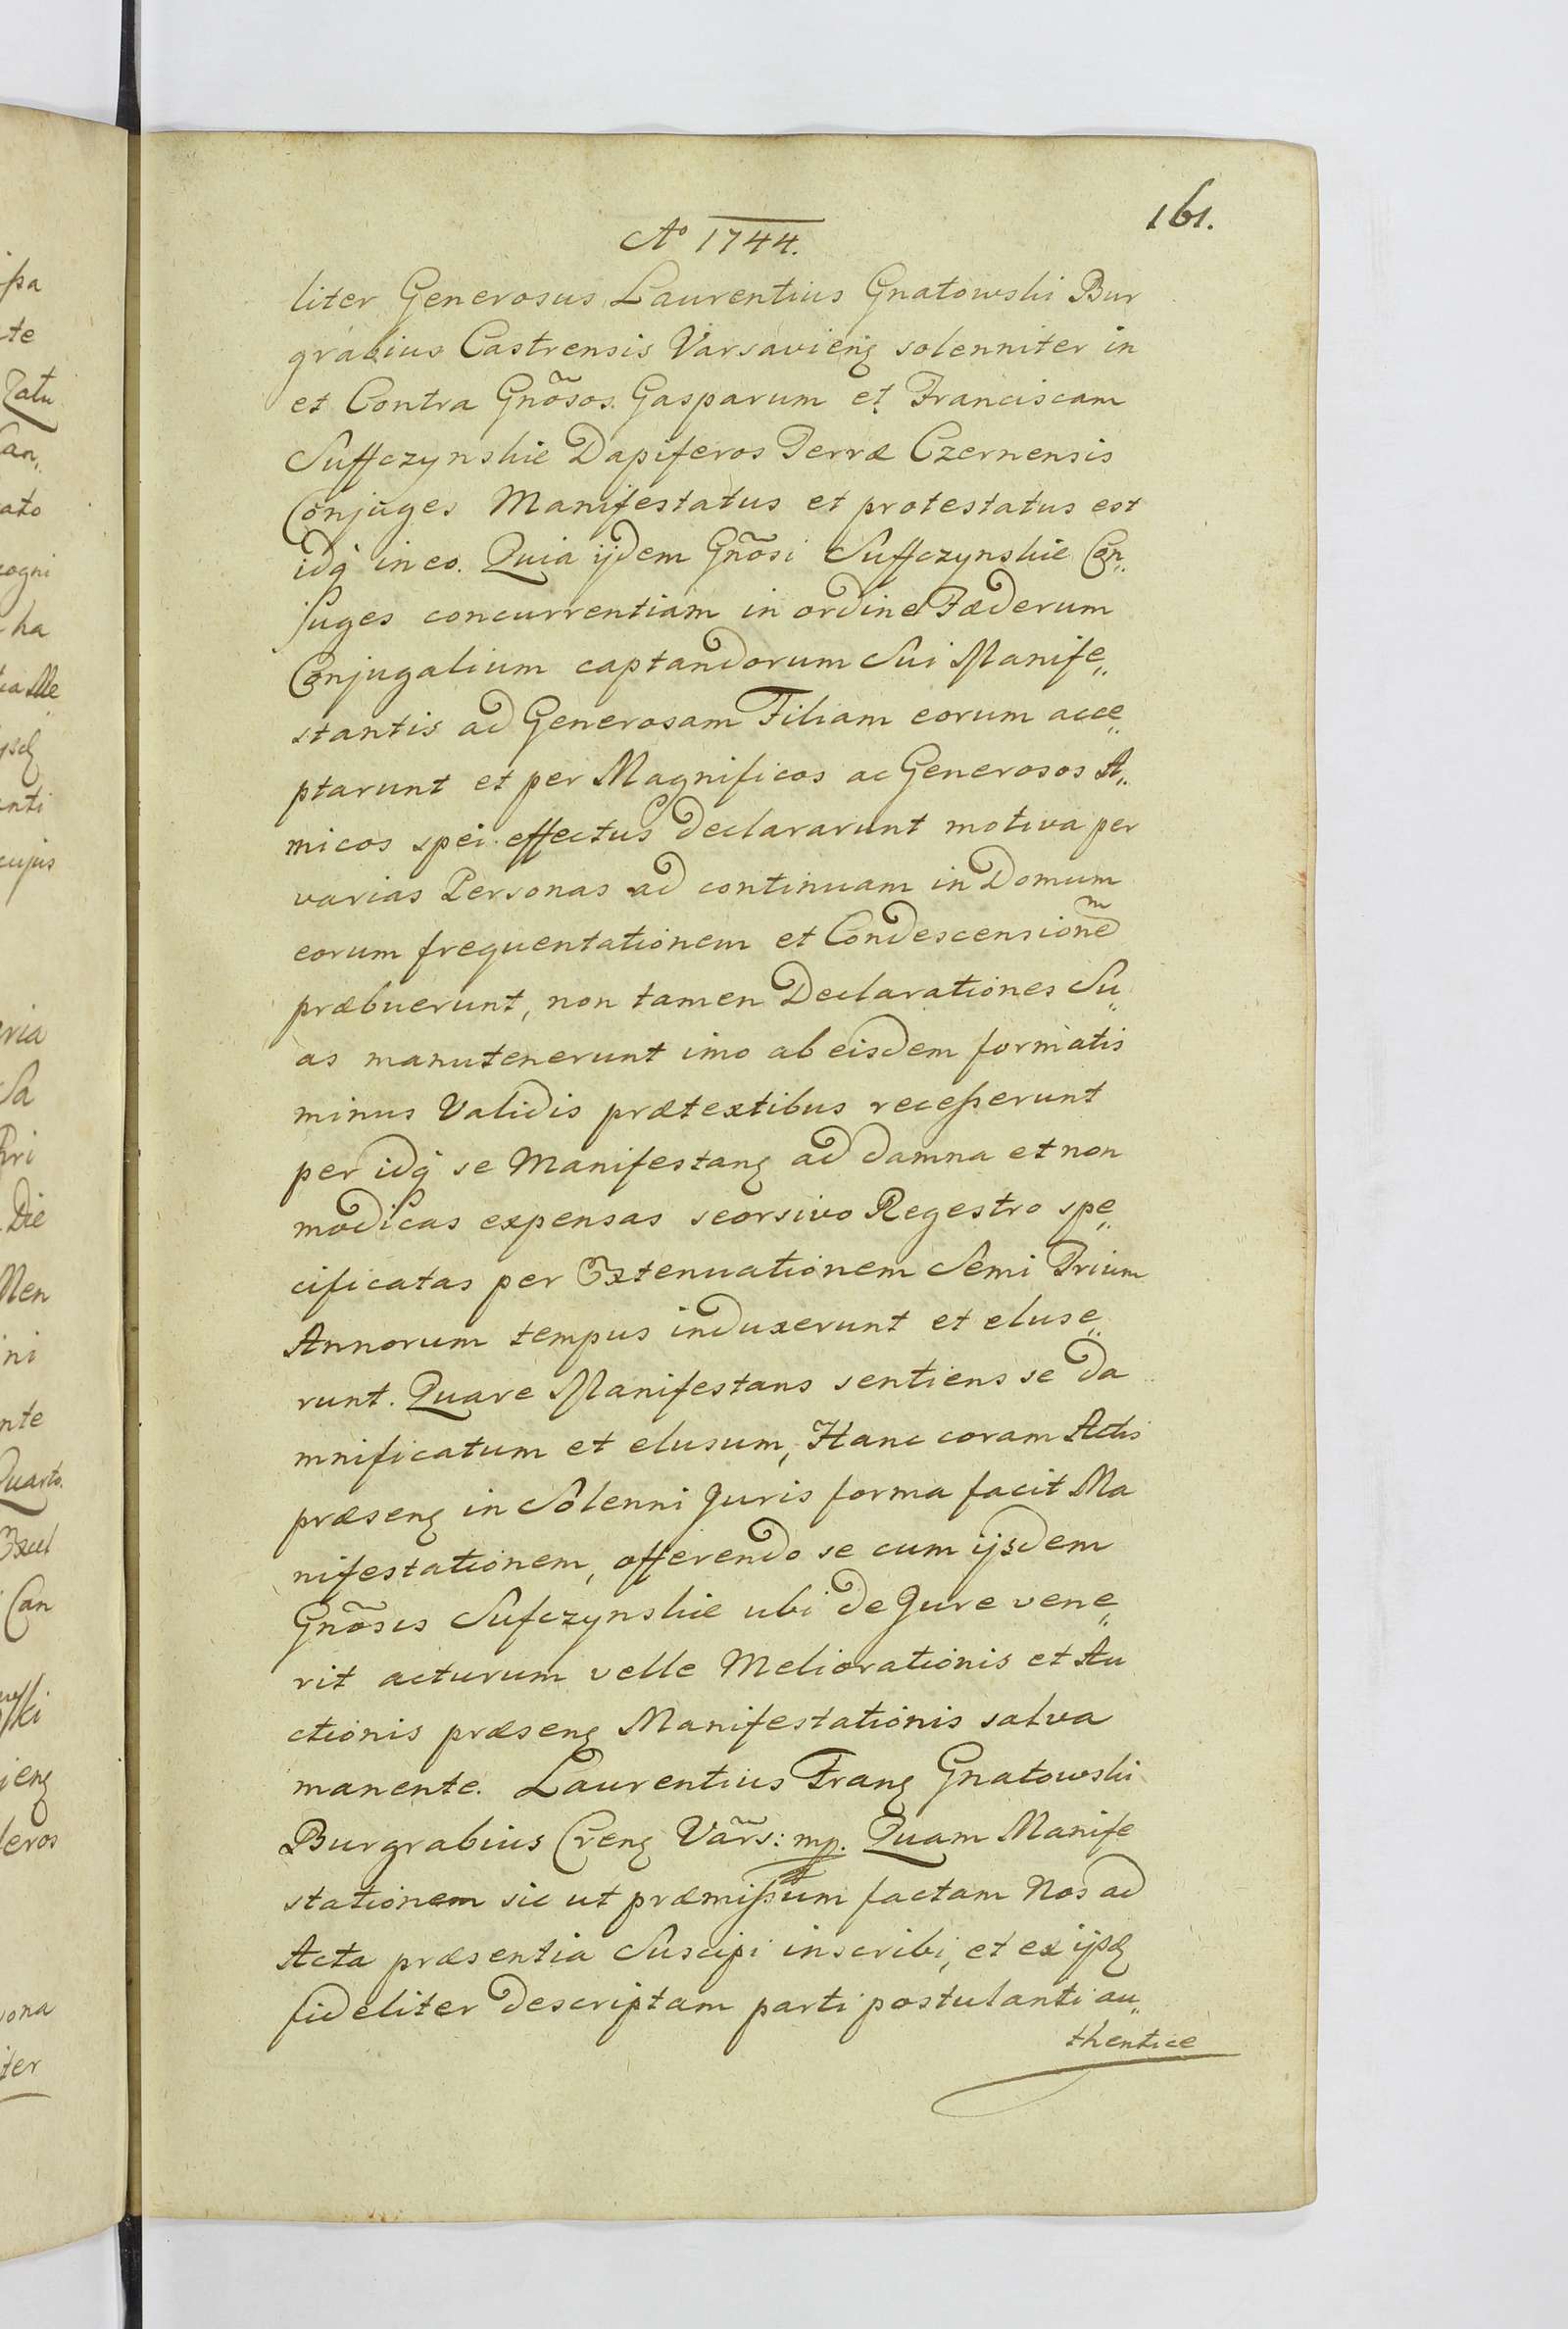 161.
Aº 1744.
liter Generosus Laurentius Gnatowski Bur
grabius Castrensis Varsavieñs solenniter in
et Contra Gnõsos Gasparum et Franciscam
Suffczynskie Dapiferos Terræ Czernensis
Conjuges Manifestatus et protestatus est
idq in eo. Quia ijdem Gnõsi Suffczynskie Con„
juges concurrentiam in ordine Fæderum
Conjugalium captandorum Sui Manife„
stantis ad Generosam Filiam eorum acce„
ptarunt et per Magnificos ac Generosos A„
micos spei effectus declararunt motiva per
varias Personas ad continuam in Domum
eorum frequentationem et Condescensionem
præbuerunt, non tamen Declarationes Su„
as manutenerunt imo ab eisdem formatis
minus Validis prætextibus recesserunt
per idq se Manifestans ad damna et non
modicas expensas seorsivo Regestro spe„
cificatas per Extenuationem Semi Trium
Annorum tempus induxerunt et eluse„
runt. Quare Manifestans sentiens se da
mnificatum et elusum, Hanc coram Actis
præsens in Solenni Juris forma facit Ma
nifestationem, offerendo se cum ijsdem
Gnõsis Sufczynskie ubi de Jure vene„
rit acturum velle Meliorationis et Au
ctionis præsens Manifestationis salva
manente. Laurentius Frans Gnatowski
Burgrabius Crens Vãrs: mp. Quam Manife
stationem sic ut præmissum factam Nos ad
Acta præsentia Suscipi inscribi, et ex ijsd
fideliter descriptam parti postulanti au„
thentice